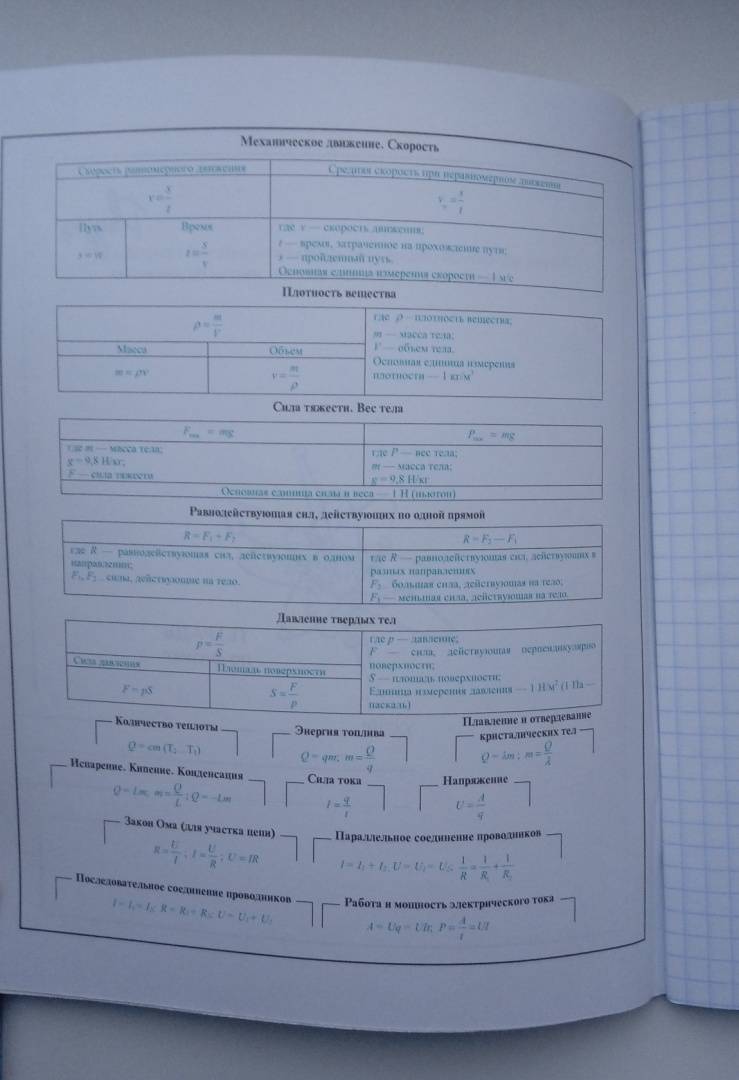 Механическое движение. Скорость
Скорость равномерного движения
Средняя скорость при неравномерном движении
v = s/t
v = s/t
Путь
Время
s = vt
t = s/v
где v — скорость движения;
t — время, затраченное на прохождение пути;
s — пройденный путь.
Основная единица измерения скорости — 1 м/с
Плотность вещества
ρ = m/V
Масса
Объем
m = ρv
v = m/ρ
где ρ – плотность вещества;
m — масса тела;
V — объем тела.
Основная единица измерения
плотности — 1 кг/м³
Сила тяжести. Вес тела
F = mg
P = mg
где m — масса тела;
g = 9,8 Н/кг;
F — сила тяжести
где P — вес тела;
m — масса тела;
g = 9,8 Н/кг
Основная единица силы и веса — 1 Н (ньютон)
Равнодействующая сил, действующих по одной прямой
R = F₁ + F₂
R = F₂ — F₁
где R — равнодействующая сил, действующих в одном
направлении;
F₁, F₂ - силы, действующие на тело.
где R — равнодействующая сил, действующих в
разных направлениях
F₂ - большая сила, действующая на тело;
F₁ — меньшая сила, действующая на тело.
Давление твердых тел
p = F/S
Сила давления
Площадь поверхности
F = pS
S = F/p
где p — давление;
F — сила, действующая перпендикулярно
поверхности;
S — площадь поверхности;
Единица измерения давления — 1 Н/м² (1 Па —
паскаль)
Количество теплоты
Q = cm (T₂ - T₁)
Энергия топлива
Q = qm; m = Q/q
Плавление и отвердевание
кристалических тел
Q = λm ; m = Q/λ
Испарение. Кипение. Конденсация
Q = Lm; m = Q/L ; Q = -Lm
Сила тока
I = q/t
Напряжение
U = A/q
Закон Ома (для участка цепи)
R = U/I ; I = U/R ; U = IR
Параллельное соединение проводников
I = I₁ + I₂, U = U₁ = U₂; 1/R = 1/R₁ + 1/R₂
Последовательное соединение проводников
I = I₁ = I₂; R = R₁ + R₂; U = U₁ + U₂
Работа и мощность электрического тока
A = Uq = UIt; P = A/t = UI